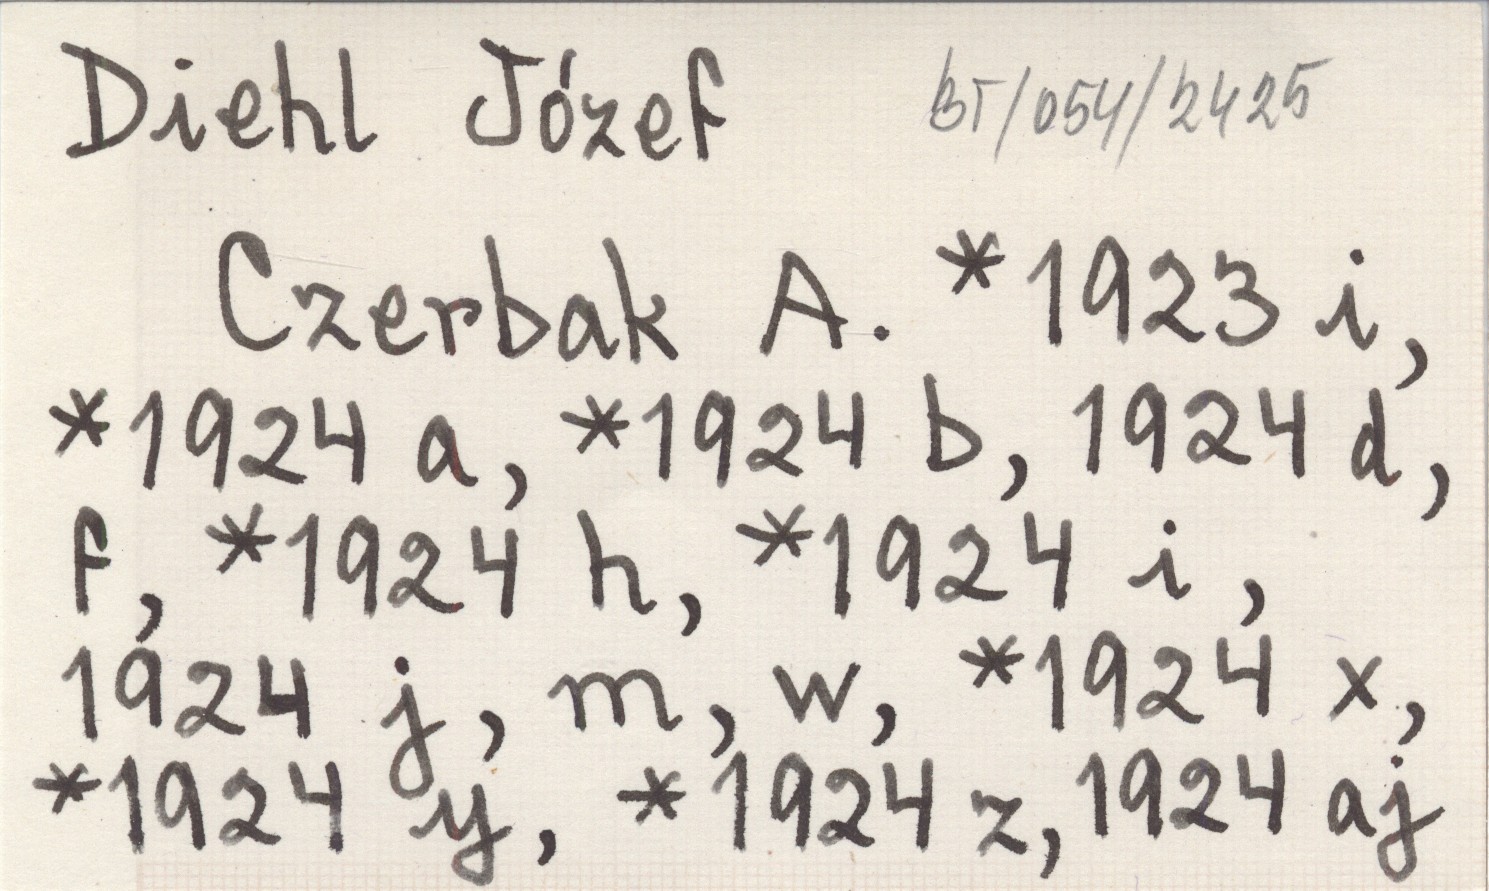 Diehl Józef BT/054/2425
Czerbak A. *1923 i,
*1924 a, *1924 b, 1924 d,
f, *1924 h, *1924 i,
1924 j, m, w, *1924 x,
*1924 y, *1924 z, 1924 aj